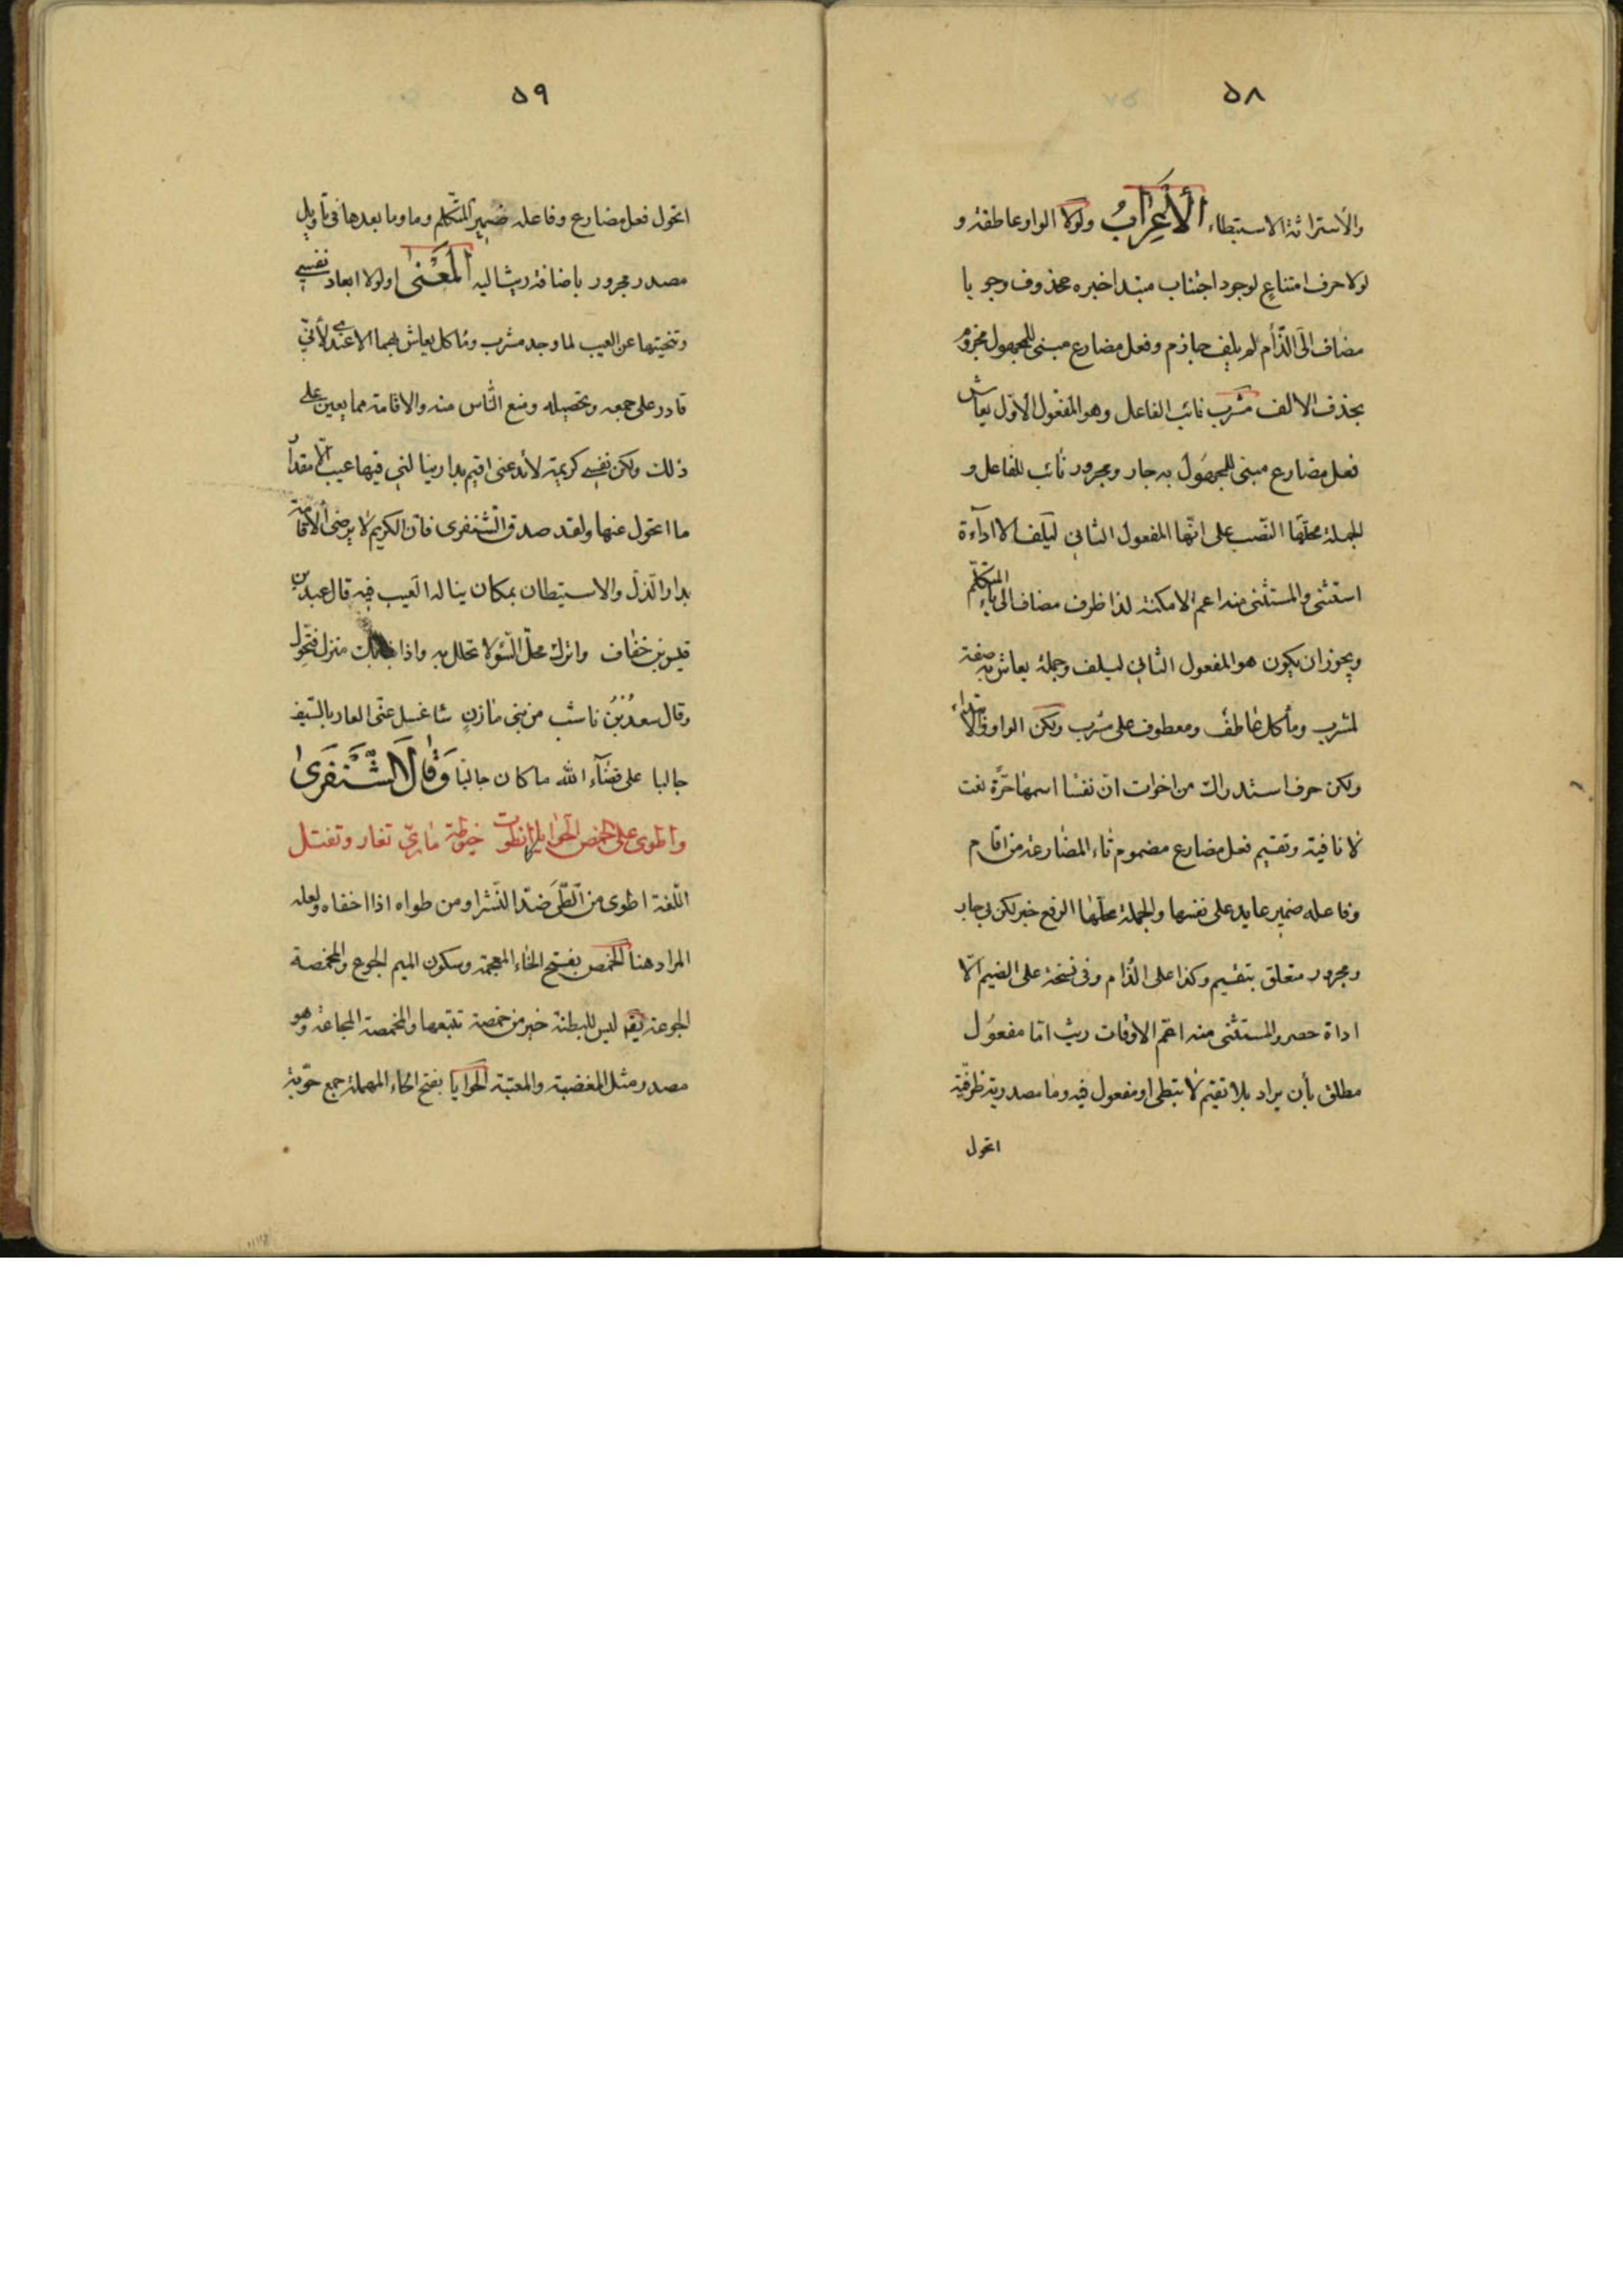 ٥٨
والأستراثة الاستبطاء الأَعِرَابُ ولولا الواو عاطفة و
لولا حرف امتناعٍ لوجود اجتناب مبتدا خبره محذوف وجوبا
مضاف الى الذّأم لم يلف جازم وفعل مضارع مبنى للمجهول مجزوم
بحذف الالف مشرب نائب الفاعل وهو المفعول الأوّل يعاش
فعل مضارع مبنى للمجهول به جار ومجرور نائب للفاعل و
الجملة محلّها النّصب على انّها المفعول الثانى ليلف الا اداءة
استثنى والمستثنى منه اعم الامكنة لذا ظرف مضاف الى ياء المتكلّم
ويجوز ان يكون هو المفعول الثانى ليلف وجملة يعاش به صفة
لمشرب ومأكل عاطف ومعطوف على مشرب ولكن الواو
ولكن حرف استدراك من اخوات انّ نفسًا اسمها حرّة نعت
لا نافية وتقيم فعل مضارع مضموم تاء المضارعة من اقام
وفاعله ضمير عايد على نفسها والجملة محلّها الرفع خبر لكن بى جار
ومجرور متعلق بتقيم وكذا على الذام وفى نسخة على الضيم الّا
اداة حصر والمستثنى منه اعّم الاوقات ريث امّا مفعول
مطلق بأن يراد بلا تقيم لا تبطى او مفعول فيه وما مصدرية ظرفيّة
اتحول
٥٩
اتحول فعل مضارع وفاعله ضمير المتكلم وما وما بعدها فى تأويل
مصدر مجرور باضافة ريث اليه الْمَعْنىٰ لولا ابعاد نفسى
وتنحيتها عن العيب لما وجد مشرب ومأكل يعاش بهما الا عندى لأنّى
قادر على جمعه وتحصيله ومنع النّاس منه والاقامة مما يعين على
ذلك ولكن نفسى كريمة لا تدعنى اقيم بدار ينالنى فيها عيب الّا مقدار
ما اتحول عنها ولقد صدق الشّنفرى فانّ الكريم لا يرضى الاقامة
بدار الذلّ والاستيطان بمكان يناله العيب فيه قال عبد بن
قيس بن خفاف واترك محلّ السّؤ لا تحلل به واذا منزل فتحوّل
وقال سعدُ بْنُ ناشب من بنى مازنٍ ساغسل عنّى العار بالسّيف
جالبا على قضاء الله ما كان جالبًا وَقَالَ الشَّنْفَرَىٰ
واطوى على الخمص الحوايا كما انطوت خيوطة مارىّ تغار وتفتل
اللّغة اطوى من الطّىّ ضدّ النّشر او من طواه اذا اخفاه ولعله
المراد هنا الخمص بفتح الخاء المعجمة وسكون الميم الجوع والمخمصة
الجوعة يقم ليس للبطنة خير من خمصة تتبعها والمخمصة المجاعة وهو
مصدر مثل المغضبة والمعتبة الحوايا بفتح الحاء المهملة جمع حوّية